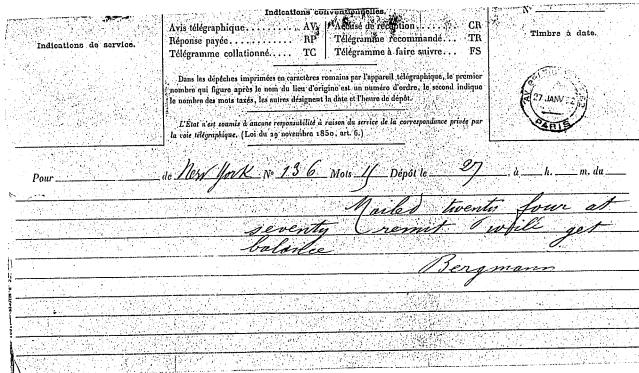 Indications de service.
Indications conventionnelles.
Avis télégraphique.......... AV
Réponse payée.......... RP
Télégramme collationné..... TC
Accusé de réception.......... CR
Télégramme recommandé... TR
Télégramme à faire suivre... FS
N°
Timbre à date.
Dans les dépêches imprimées en caractères romains par l'appareil télégraphique, le premier
nombre qui figure après le nom du lieu d'origine est un numéro d'ordre, le second indique
le nombre des mots taxés, les autres désignent la date et l'heure de dépôt.
L'État n'est soumis à aucune responsabilité à raison du service de la correspondance privée par
la voie télégraphique. (Loi du 29 novembre 1850, art. 6.)
27 JANV
PARIS
Pour de New York N° 136 Mots 11 Dépôt le 27 à h. m. du
Mailed twenty four at
seventy remit will get
balance
Bergmann